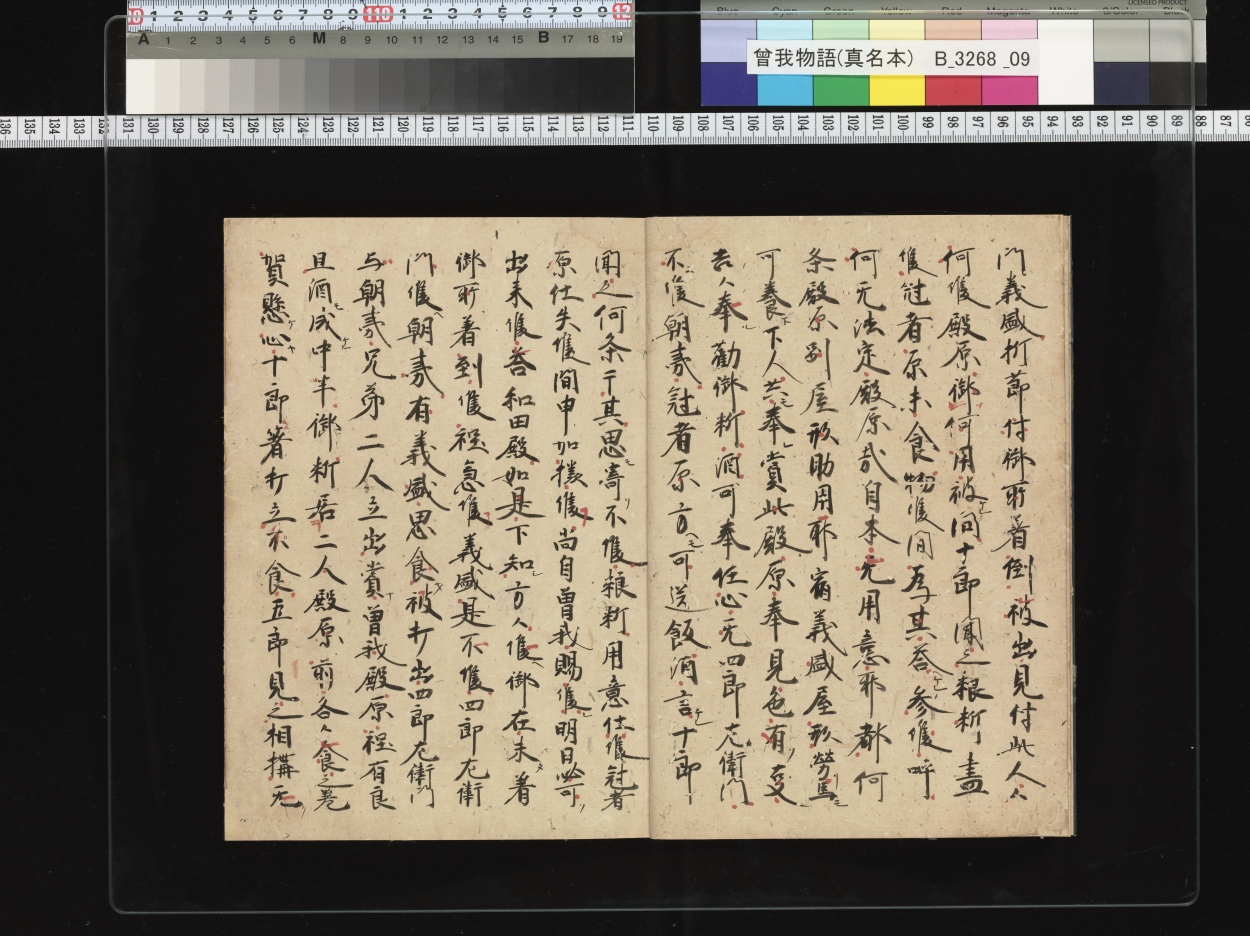 曾我物語(真名本) B_3268_09
門義盛折節付御所着到被出見付此人々
何隻殿原御何用被問十郎聞之粮斫盡
隻冠者原未食物隻間互其答参隻呼
何无法定殿原哉自本无用意耶都何
条殿原別屋形助用耶宿義盛屋形労馬
可養下人共奉賞此殿原奉見色有支
吉人奉勧御斫酒可奉任心无四郎左衛門
不隻朝夷冠者原方可送飯酒言十郎
聞之何条干其思寄不隻粮斫用意仕隻冠者
原仕失隻間申加様隻尚自曽我賜隻明日必可
出来隻答和田殿如是下知方人隻御在未着
御所着到隻程急隻義盛是不隻四郎左衛
門隻朝夷有義盛思食被打出四郎左衛門
与朝夷兄弟二人立出賞曽我殿原程有良
且酒成中半御斫居二人殿原前各々食之巻
賀懸心十郎箸打立不食五郎見之相構无